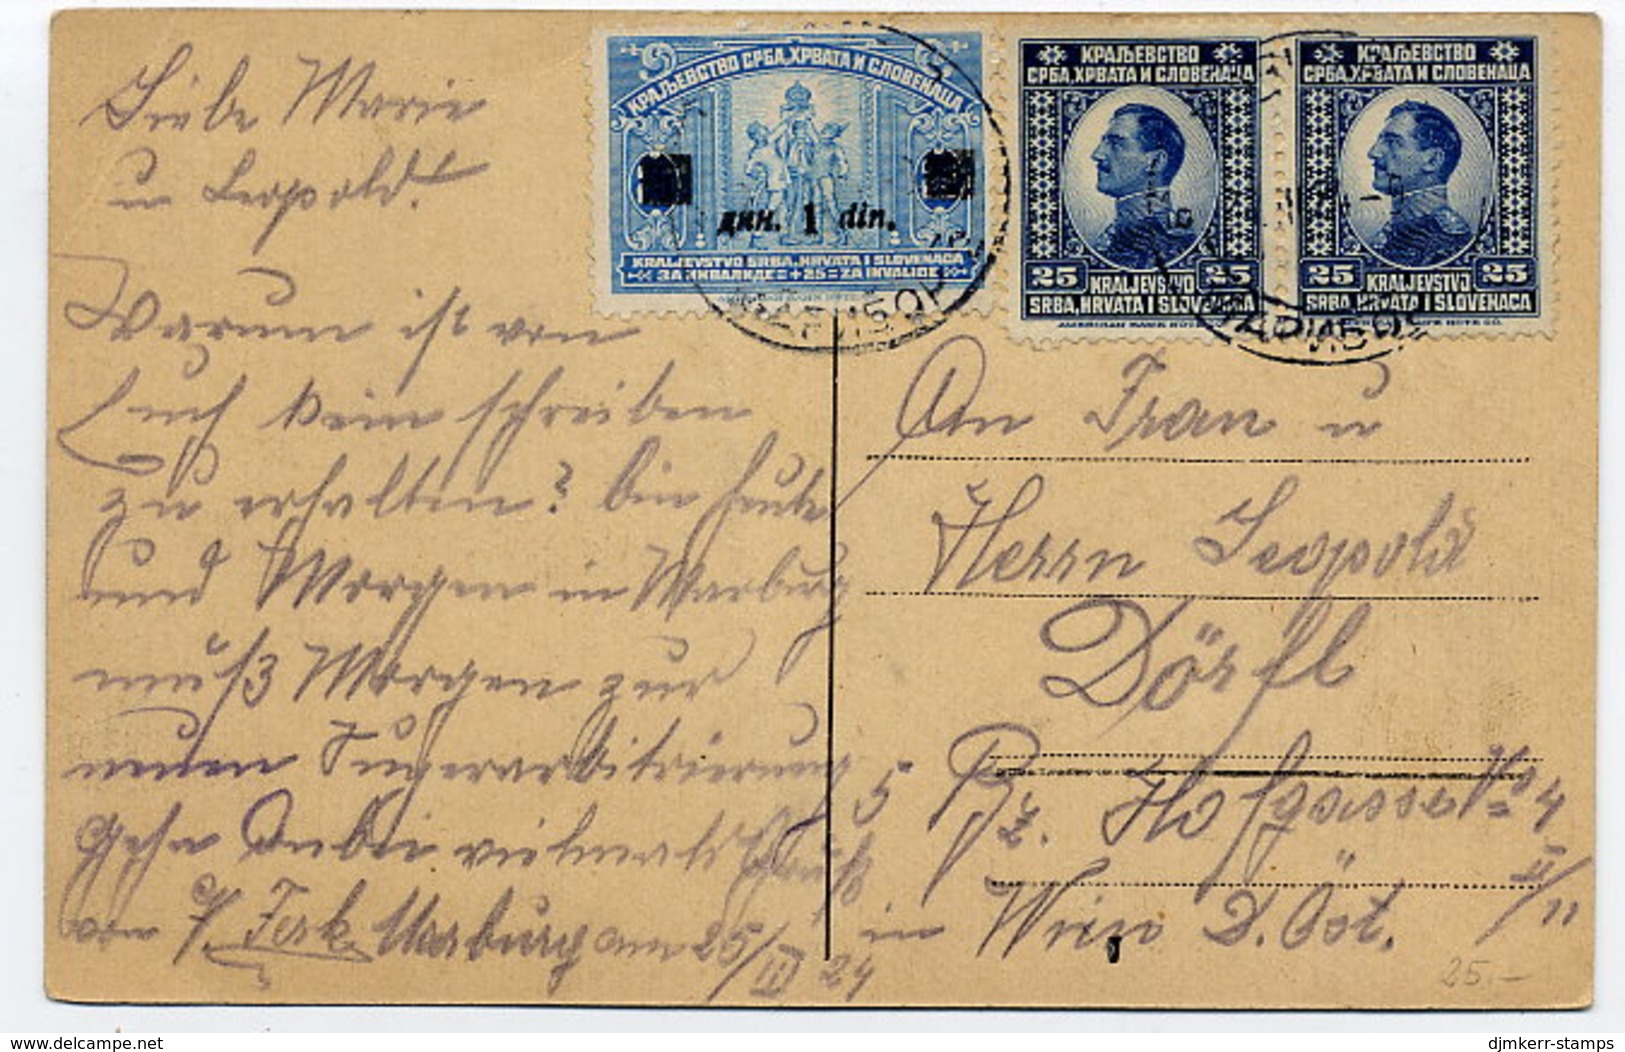 КРАЉЕВСТВО СРБА, ХРВАТА И СЛОВЕНАЦА
дин. 1 din.
KRALJEVSTVO SRBA, HRVATA I SLOVENACA
ЗА ИНВАЛИДЕ = +25 = ZA INVALIDE
КРАЉЕВСТВО
СРБА, ХРВАТА И СЛОВЕНАЦА
25 KRALJEVSTVO 25
SRBA, HRVATA I SLOVENACA
AMERICAN BANK NOTE
КРАЉЕВСТВО
СРБА, ХРВАТА И СЛОВЕНАЦА
25 KRALJEVSTVO 25
SRBA, HRVATA I SLOVENACA
NOTE CO.
МАРИБОР
МАРИБОР
Liebe Marie
u Leopold!
Warum ist von
Euch kein schreiben
zu erhalten? bin heute
und Morgen in Marburg
muß Morgen zur
neuen
Gehn vielmals
von Marburg am 25/III 24
An Frau u
Herrn Leopold
Dörfl
5 Bz. Hofgasse No 4
II/11
in Wien D. Öst.
25.-
www.delcampe.net
djmkerr-stamps